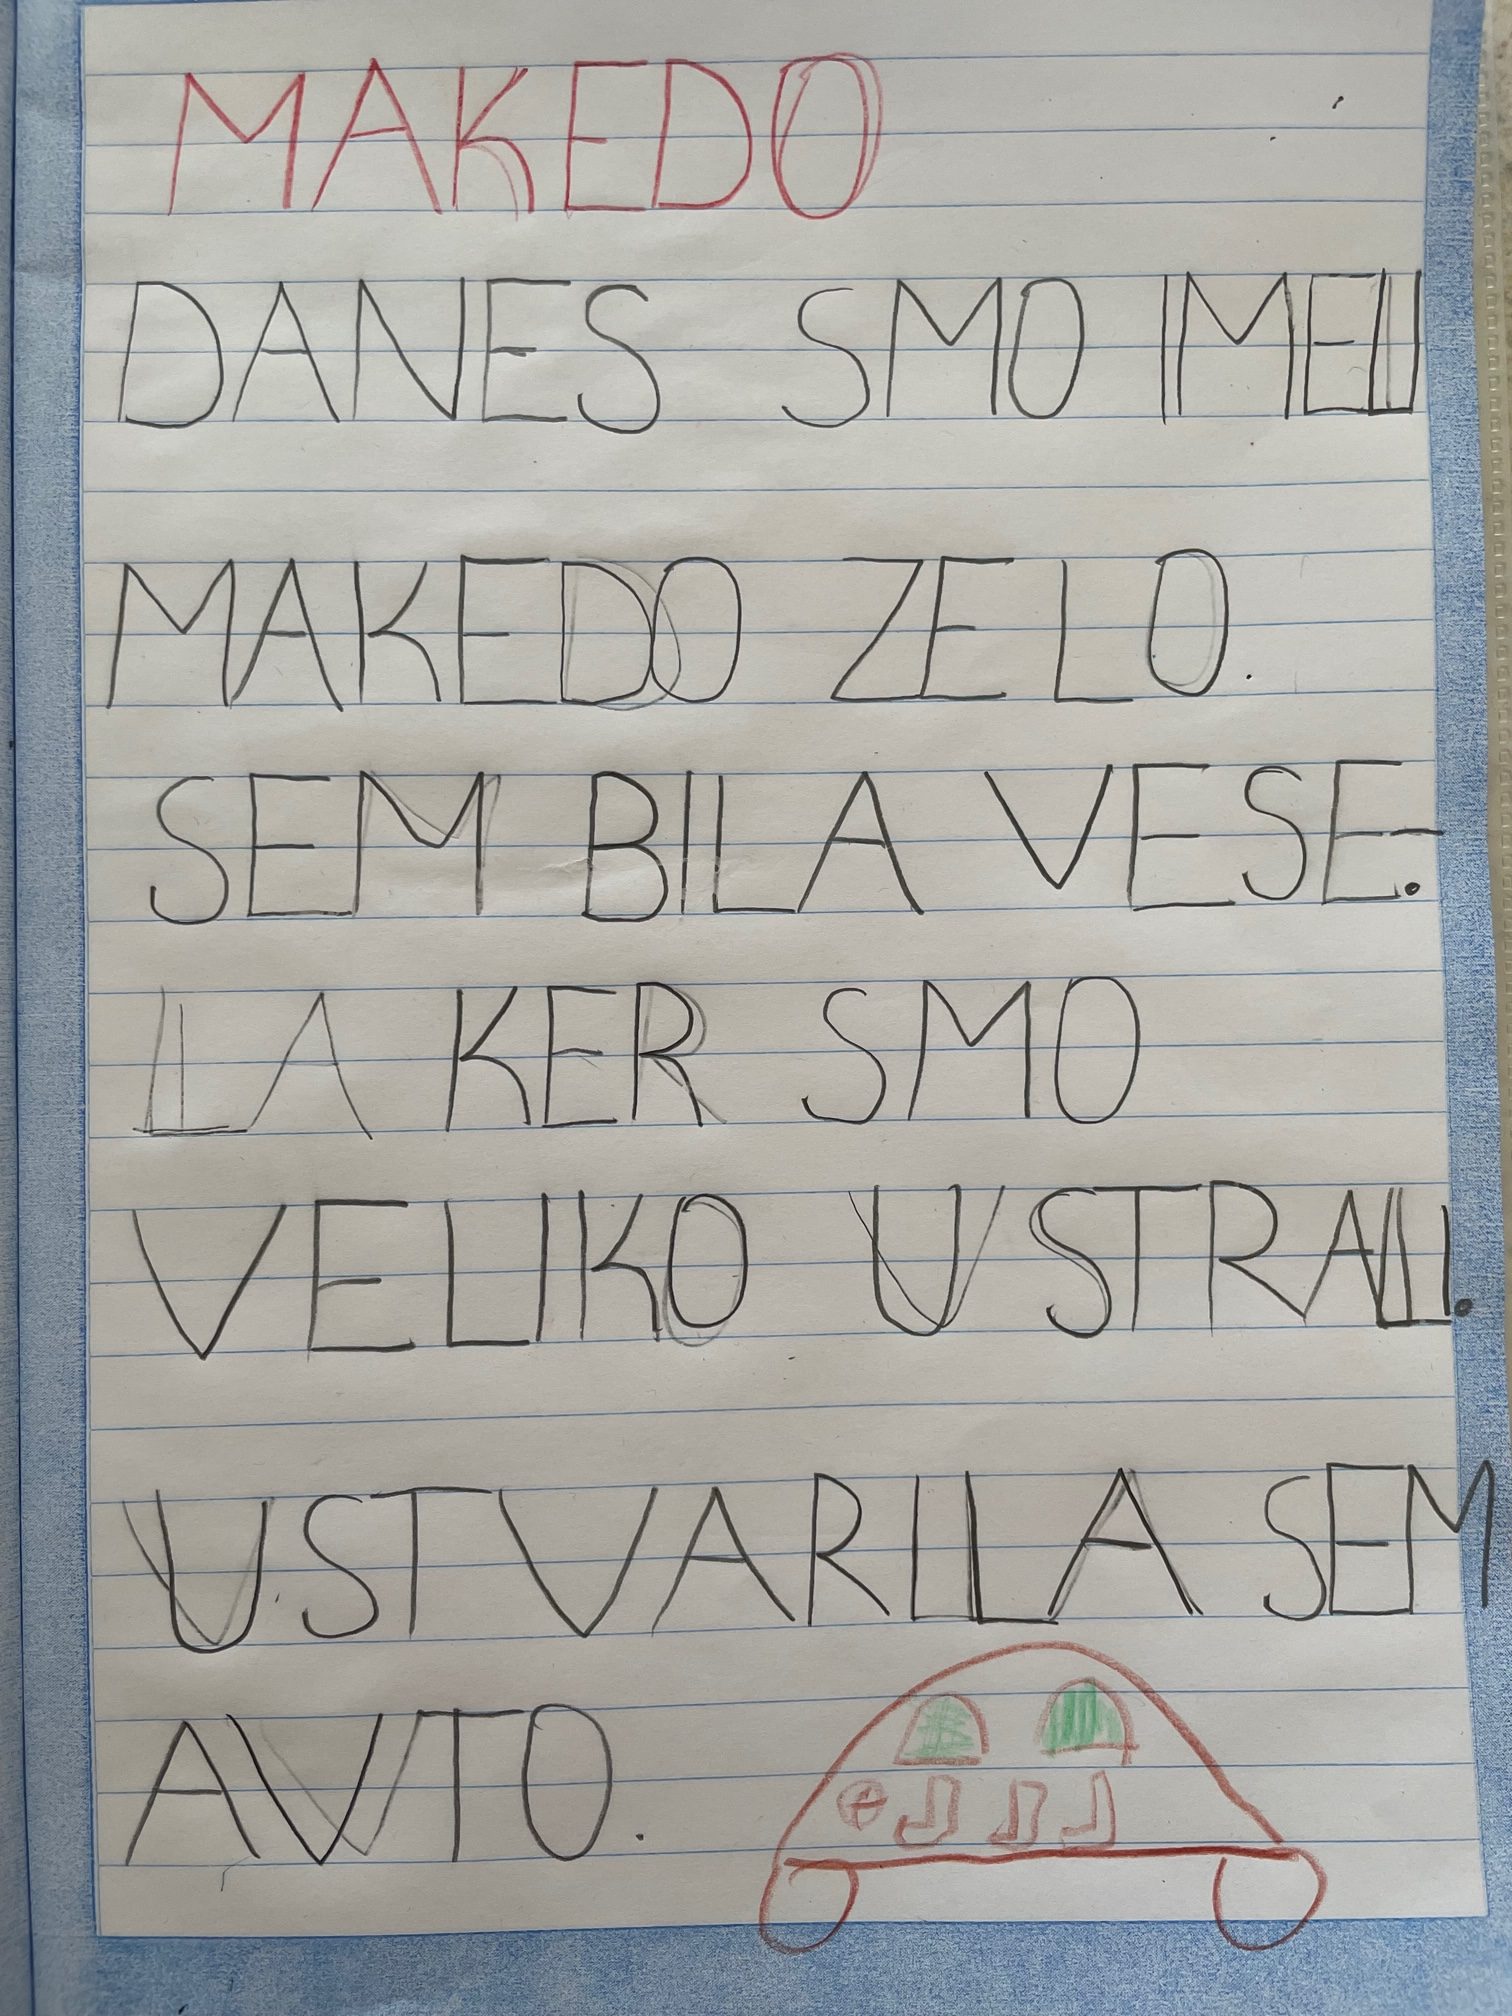 MAKEDO
DANES SMO IMELI
MAKEDO ZELO.
SEM BILA VESE-
LA KER SMO
VELIKO USTRALI.
USTVARILA SEM
AVTO.